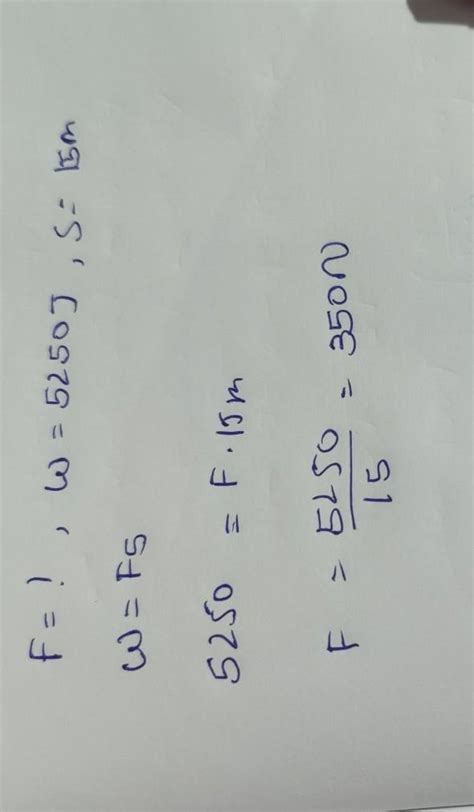 F = ? , W = 5250J , S = 15m
W = FS
5250 = F · 15m
F = 5250/15 = 350N